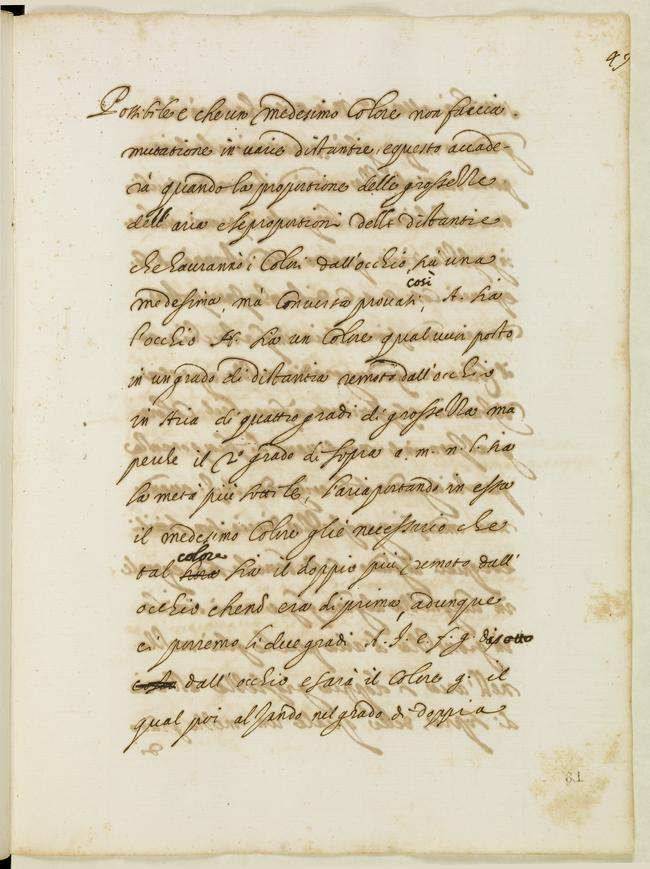 49
Possibile è che un medesimo Colore non faccia
mutatione in varie distantie, e questo accade-
rà quando la proportione delle grossezze
dell'aria e le proportioni delle distantie
che hauranno i Colori dall'occhio sia una
così
medesima, mà Conversa provasi, A. sia
l'occhio H. sia un Colore qual vuoi posto
in un grado di distantia remoto dall'occhio
in Aria di quattro gradi di grossezza ma
perche il 2º grado di sopra a. m. n. l. ha
la metà più sottile, l'aria portando in essa
il medesimo Colore gliè necessario che
colore
tal sia il doppio più remoto dall'
occhio che nõ era di prima, adunque
ci porremo li due gradi A. f. e. f. g. discosto
dall'occhio e sarà il Colore g. il
qual poi alzando nel grado di doppia
61